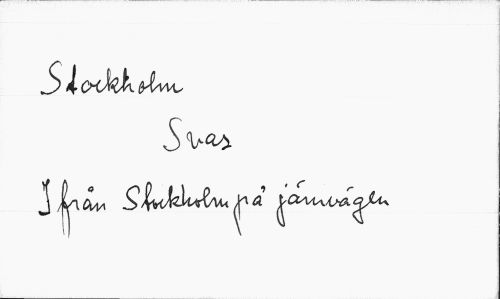 Stockholm
Svar
I från Stockholm på järnvägen